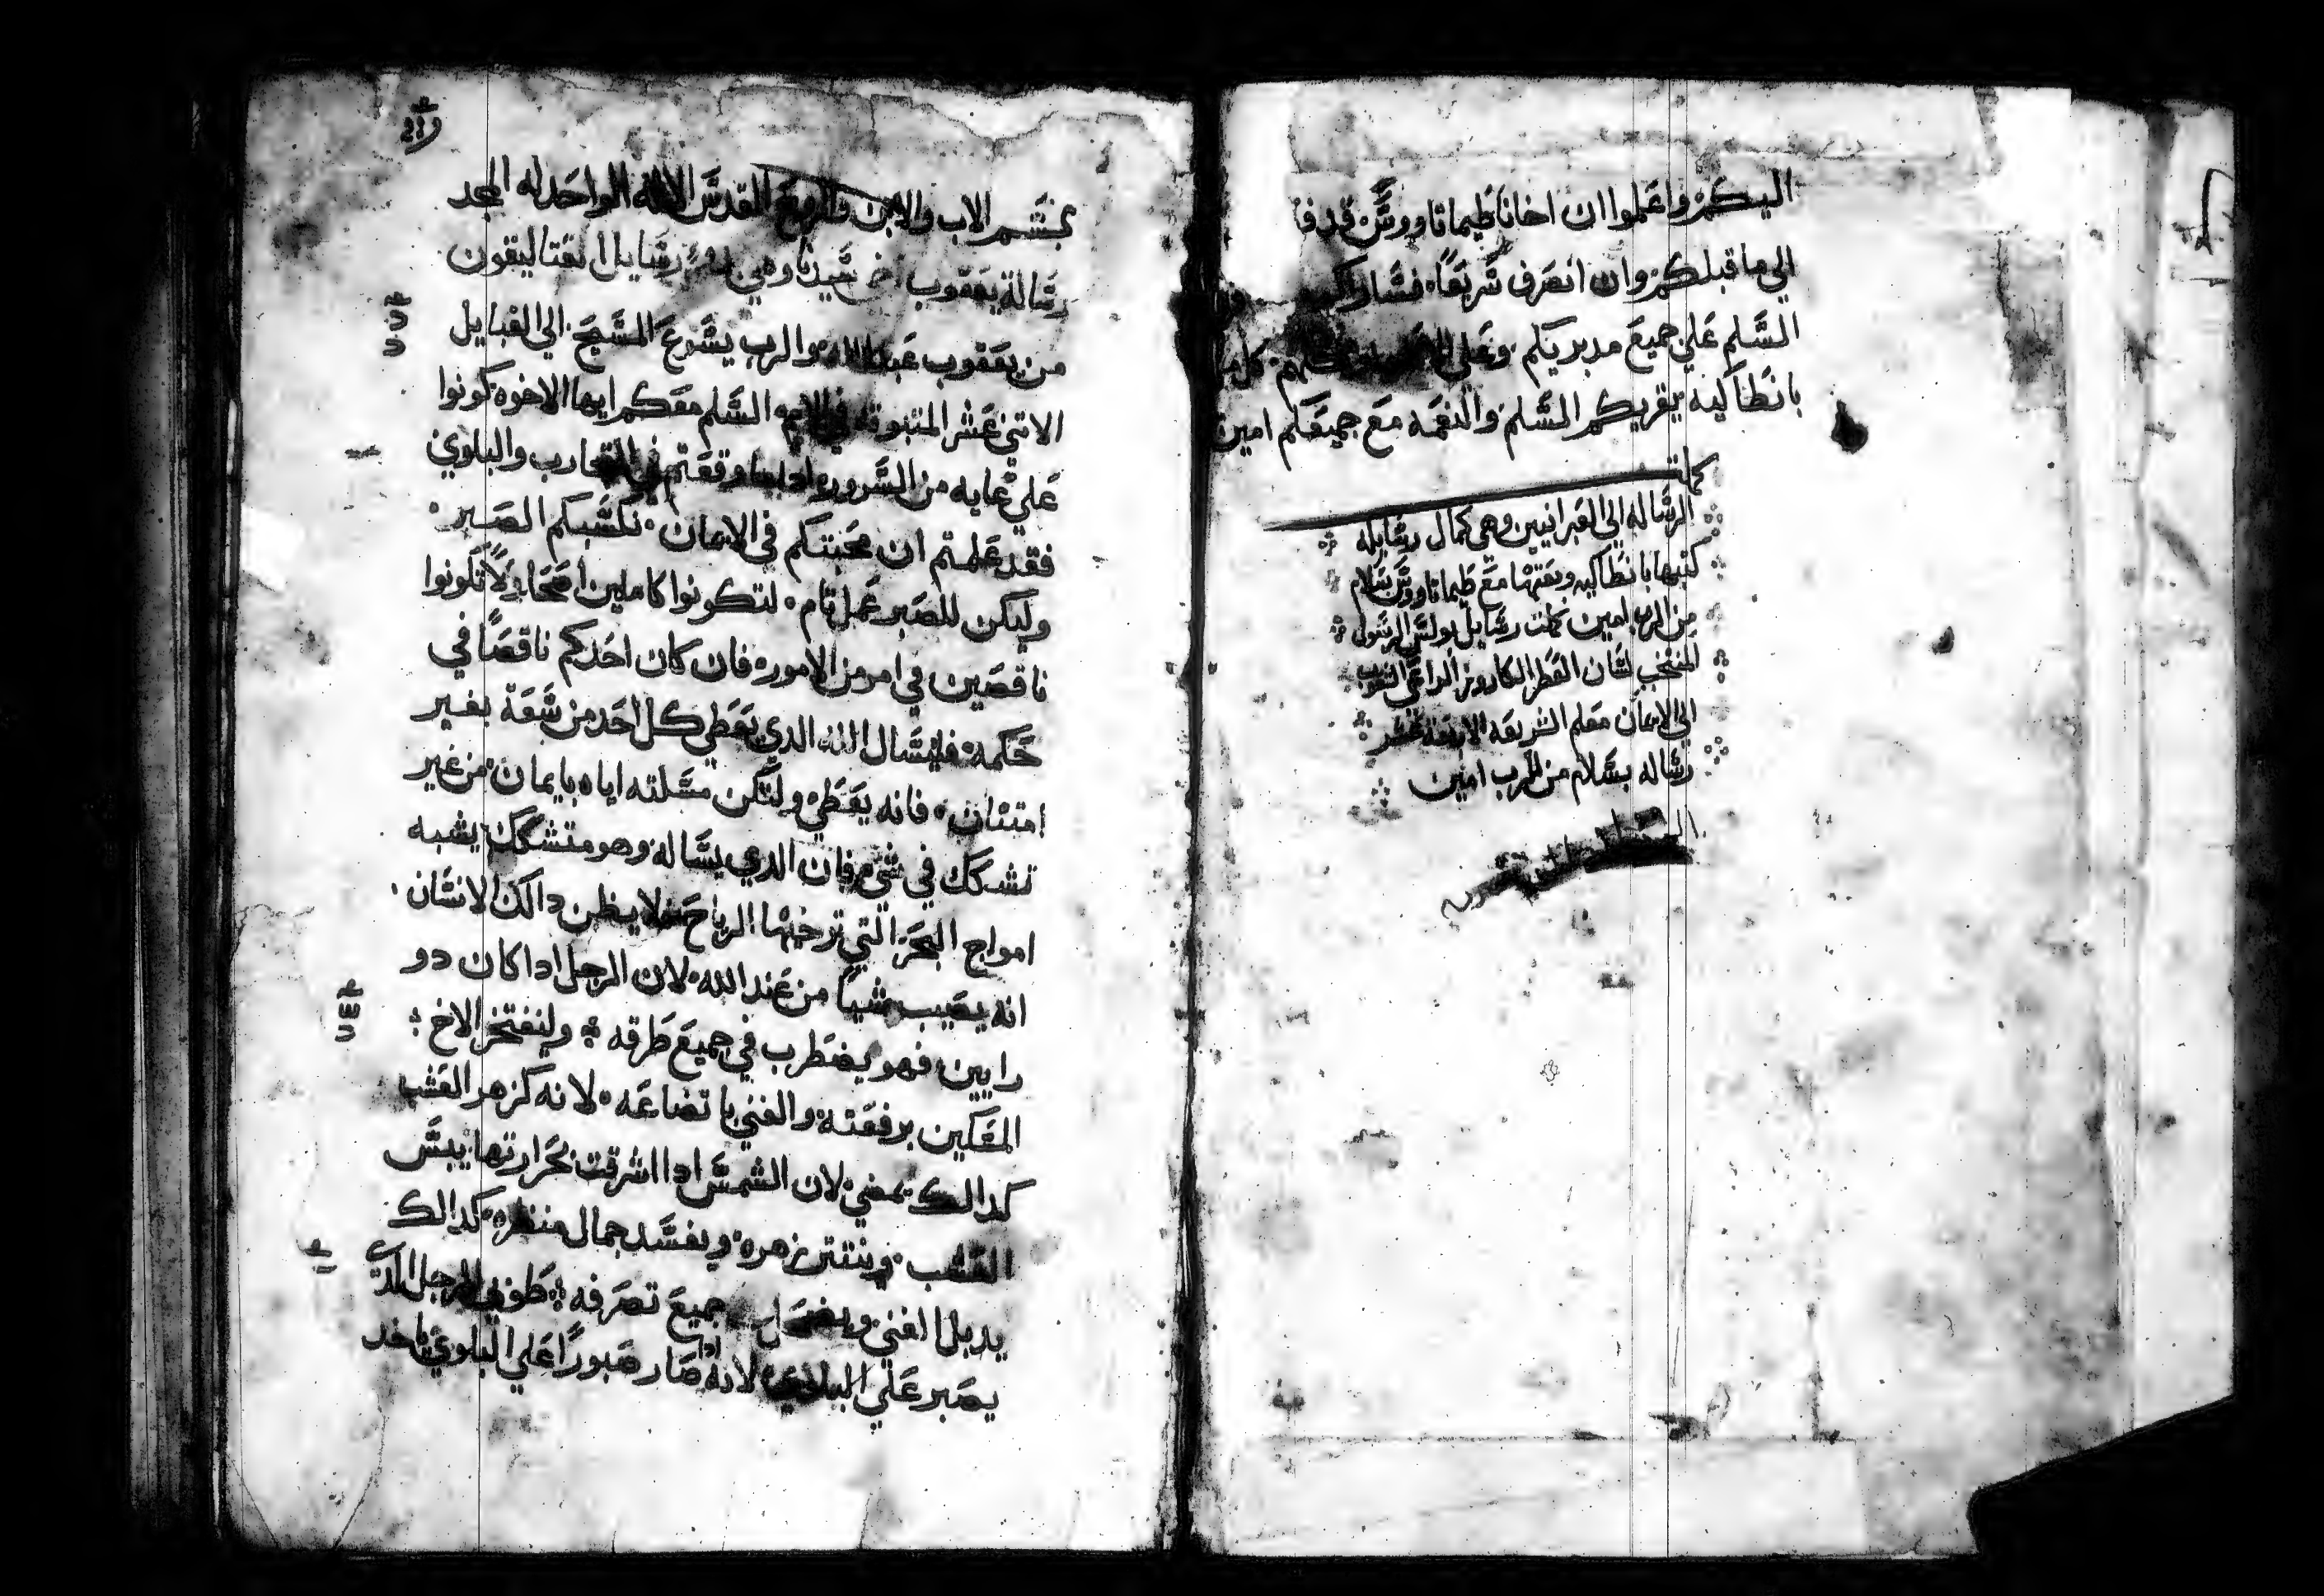 اليكم واعلموا ان اخانا طيماتاووس قد
الي ما قبلكم وان انصرف سريعا فساراكم
السلم علي جميع مدبريكم وعلي
بانطاكيه يقريكم السلم والنعمه مع جميعكم امين
كملت
الرساله الي العبرانيين وهي كمال رسايله
كتبها بانطاكيه وبعتها مع طيماتاووس بسلام
من الرب امين كملت رسايل بولس الرسول
المنتخب لسان العطر الكاروز الداعي الشعوب
الي الايمان معلم الشريعه الاربعة عشر
رساله بسلام من الرب امين
بسم الاب والابن والروح القدس الاله الواحد له المجد
رسالة يعقوب اخ سيدنا وهي رسايل القتاليقون
من يعقوب عبد الله والرب يسوع المسيح الي القبايل
الاتني عشر المتبوته في الامم السلم معكم ايها الاخوه كونوا
علي غايه من السرور اذا ما وقعتم في التجارب والبلوي
فقد علمتم ان محبتكم في الايمان تكسبكم الصبر
وليكن للصبر عمل تام لتكونوا كاملين اصحا ولا تكونوا
ناقصين في امر من الامور فان كان احدكم ناقصا في
حكمه فليسال الله الدي يعطي كل احد من سعة بغير
امتنان فانه يعطي ولتكن مسلته اياه بايمان من غير
تشكك في شي فان الدي يساله وهو متشكك يشبه
امواج البحر التي ترخيها الرياح فلا يظن دالك الانسان
انه يصيب شيا من عند الله لان الرجل ادا كان دو
رايين فهو يضطرب في جميع طرقه وليفتخر الاخ
المسكين برفعته والغني باتضاعه لانه كزهر العشب
كدالك يمضي لان الشمس ادا اشرقت بحرارتها يبس
العشب وينتتر زهره ويفسد جمال منظره كدالك
يدبل الغني ويضمحل جميع تصرفه طوبي للرجل الدي
يصبر علي البلاوي لانه ادا صار صبورا علي البلوي ياخد